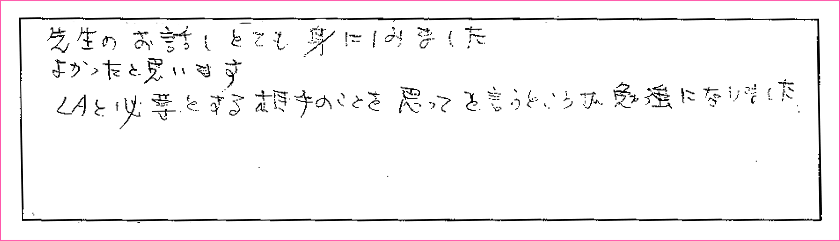 先生のお話しとても身にしみました
よかったと思います
LAと必要とする相手のことを思ってを言うところが勉強になりました